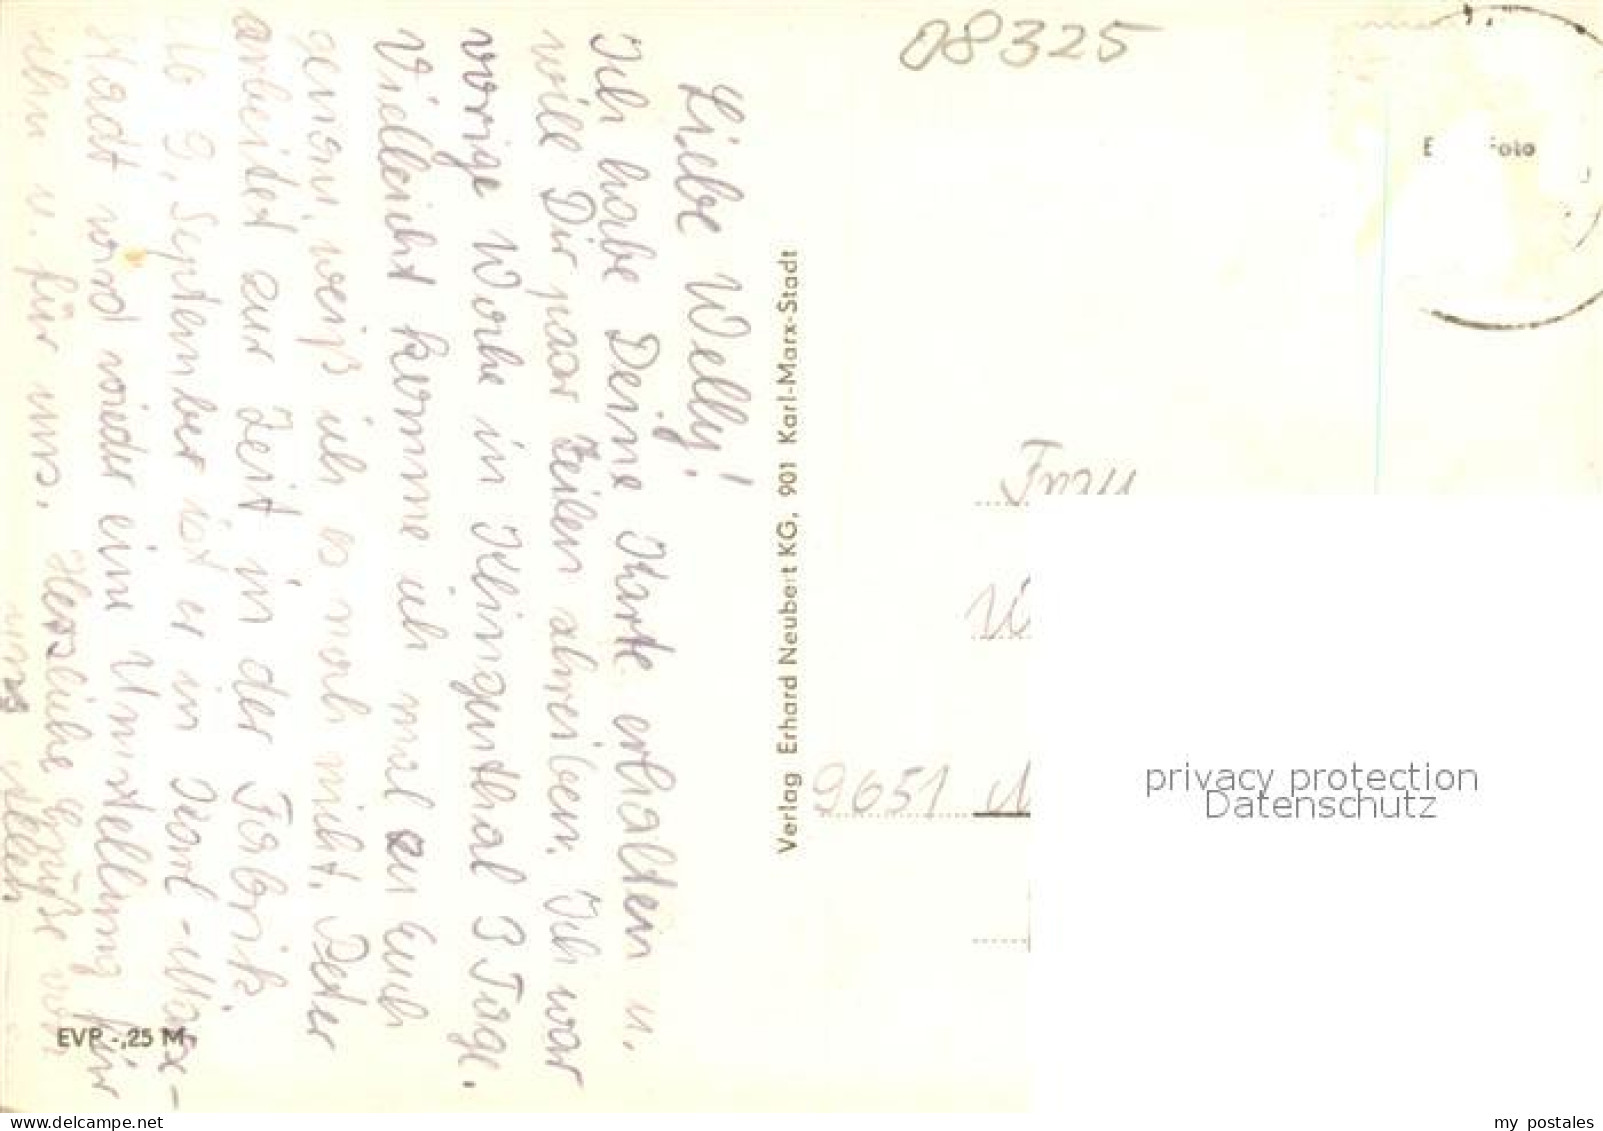 08325
Liebe Welly!
Ich habe Deine Karte erhalten u.
will Dir paar Zeilen schreiben. Ich war
vorige Woche in Klingenthal 3 Tage.
Vielleicht komme ich mal zu Euch
genau weiß ich es noch nicht. Peter
arbeitet zur Zeit in der Fabrik
ab 9. September ist er in Karl-Marx-
Stadt wird wieder eine Umstellung für
ihn u. für uns. Herzliche Grüße von
uns allen
EVP -,25 M
Verlag Erhard Neubert KG, 901 Karl-Marx-Stadt
Foto
Frau
9651
privacy protection
Datenschutz
delcampe.net
my_postales